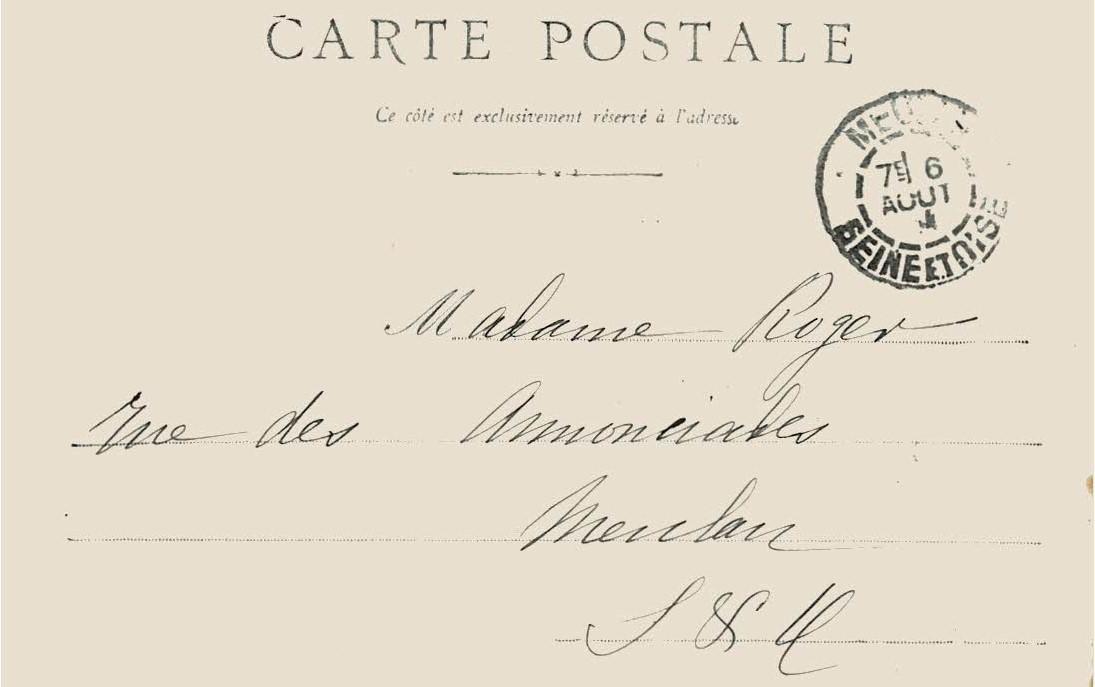 CARTE POSTALE
Ce côté est exclusivement réservé à l'adresse
7E 6
AOUT
SEINE ET OISE
Madame Roger
Rue des Annonciades
Meulan
S & O